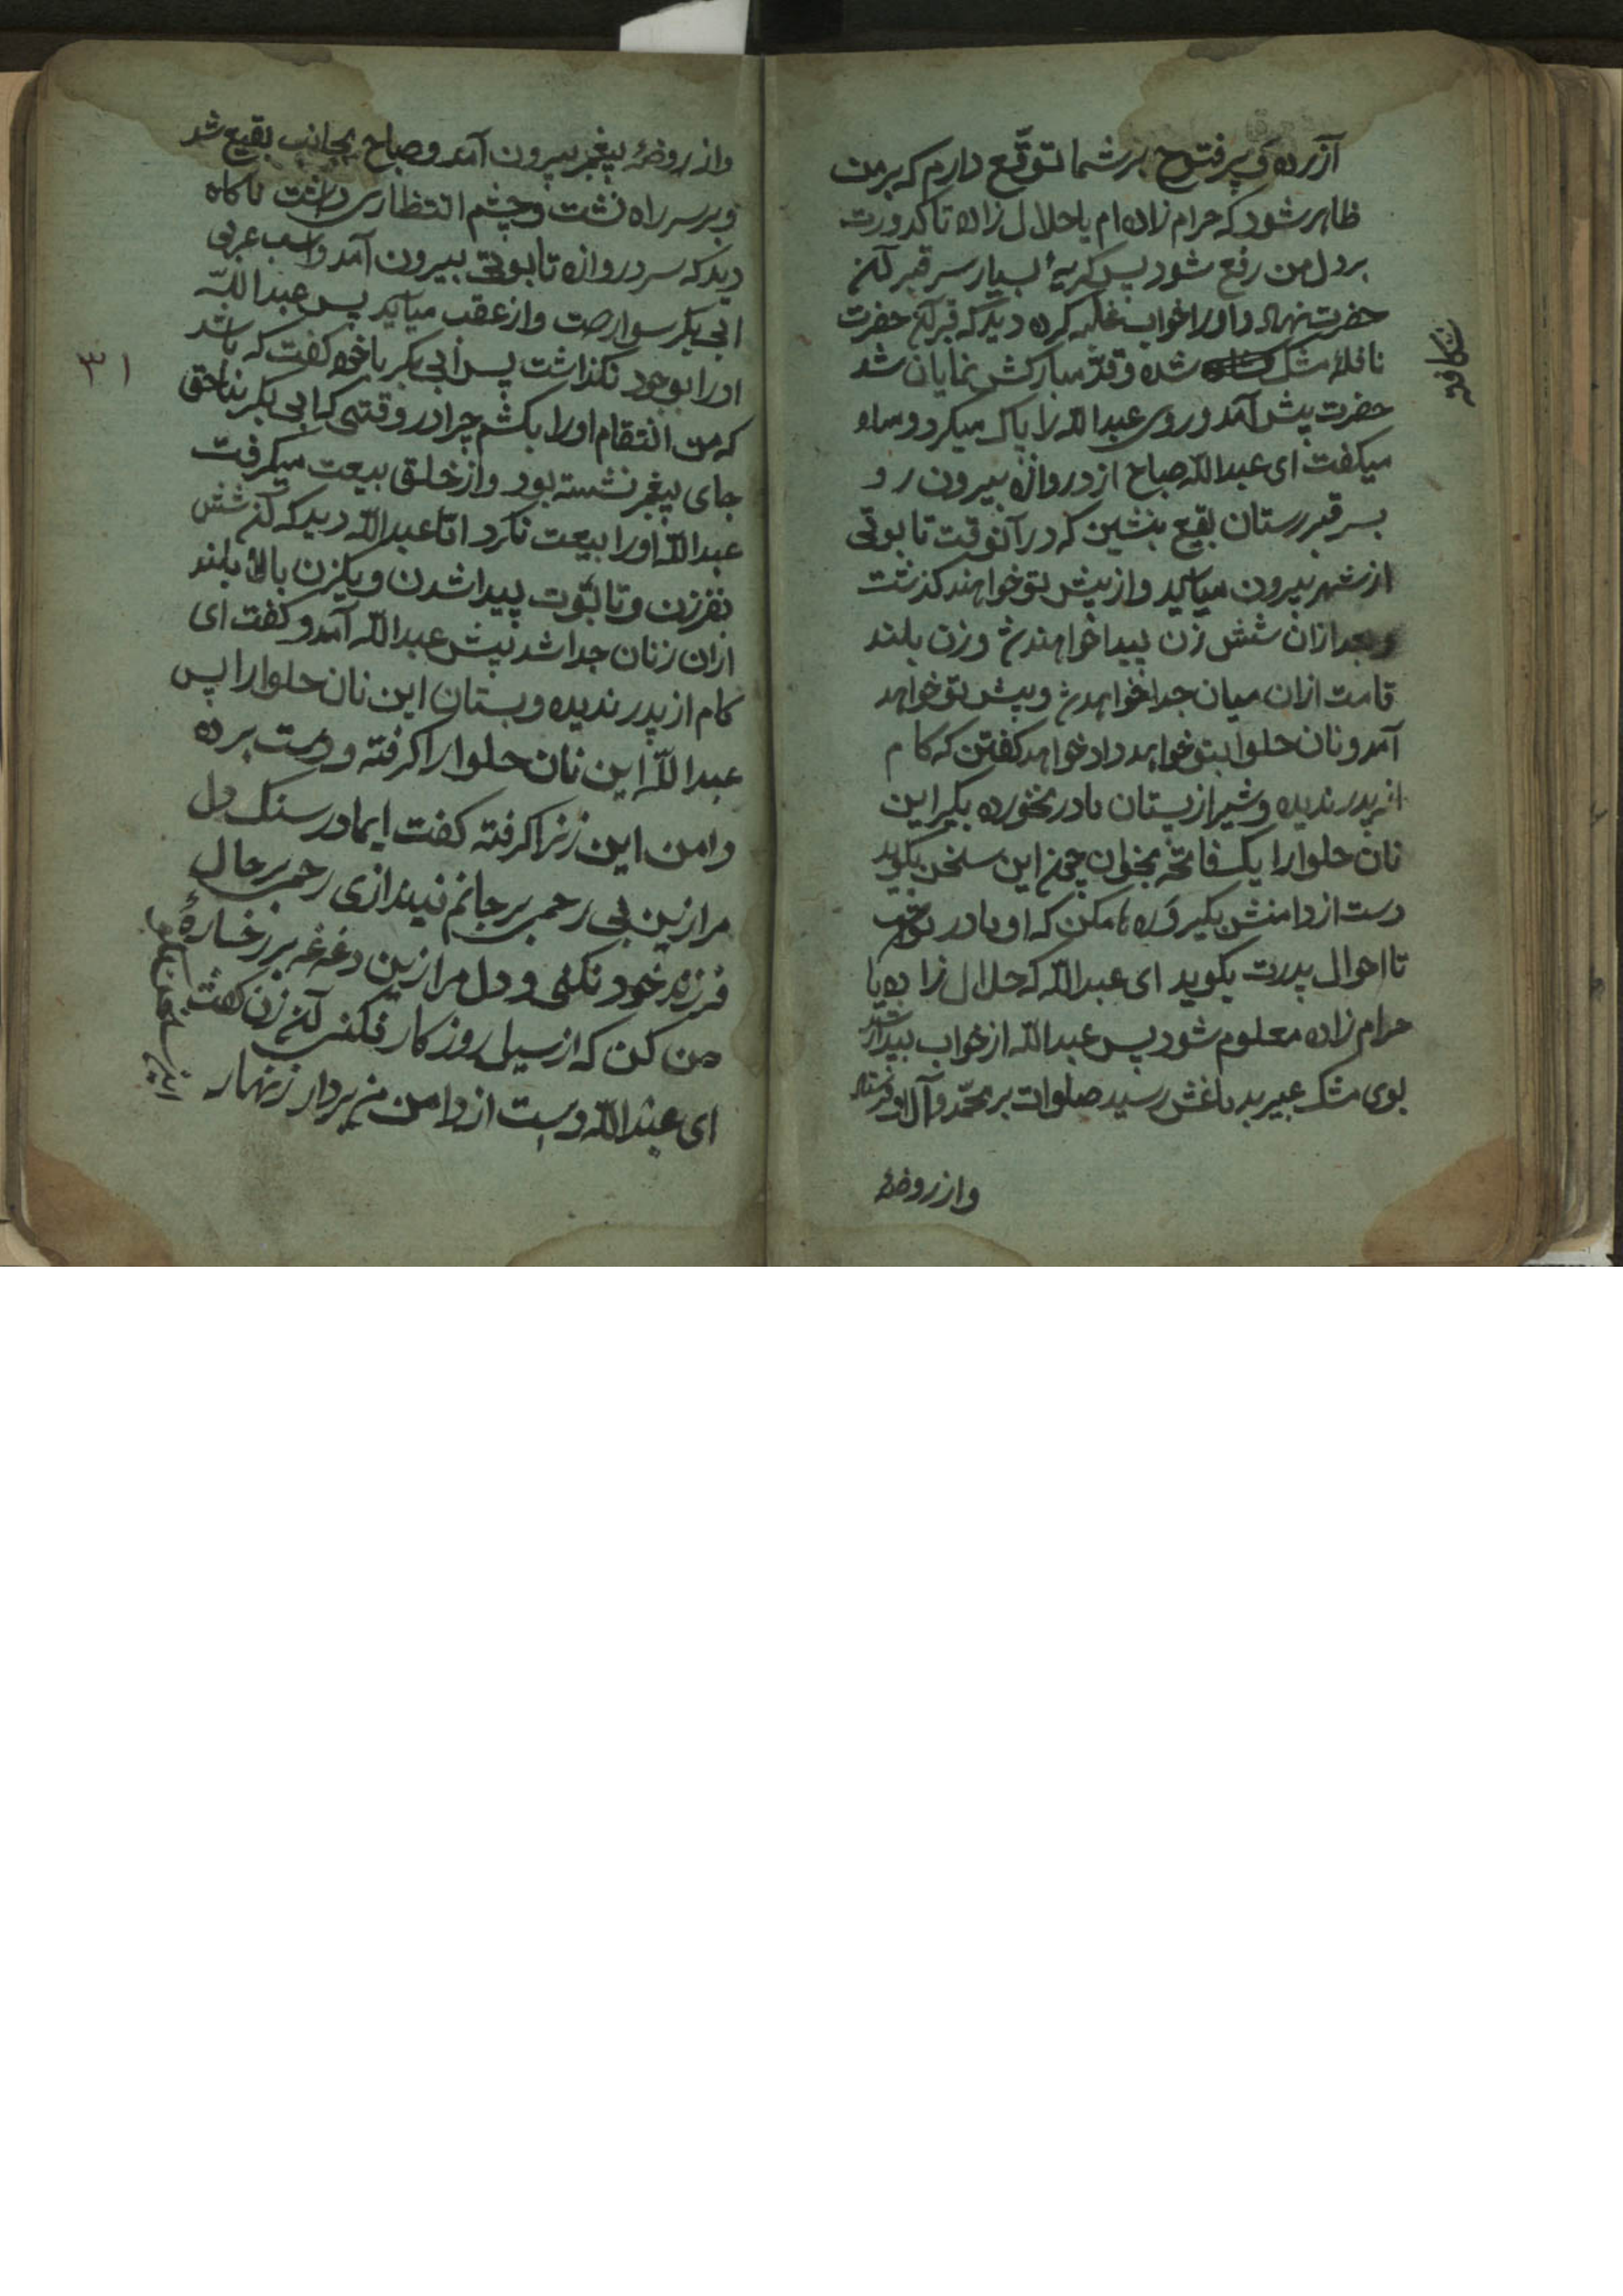 آزرده و پر فتوح بر شما توقّع دارم که بر من
ظاهر شود که حرام زاده ام یا حلال زاده تا کدورت
بر دل من رفع شود پس کریهٔ بسیار سر قبر آن
حضرت نهاد و اورا خواب غلبه کرده دید که قبر آن حضرت
شکافته
نافهٔ مشک شده و قدّ مبارکش نمایان شد
حضرت پیش آمد و روی عبدالله را پاک میکرد و
میکفت ای عبدالله صباح از دروازه بیرون رو
بسر قبرستان بقیع بنشین که در آنوقت تابوتی
از شهر بیرون میاید و از پیش تو خواهند کذشت
و بعد ازان شش زن پیدا خواهند شد و زن بلند
قامت ازان میان جدا خواهد شد و پیش تو خواهد
آمد و نان حلوا بتو خواهد داد خواهد کفتن که کام
از پدر ندیده و شیر از پستان مادر نخورده بکیر این
نان حلوارا یک فاتحه بخوان چون این سخن بکوید
دست از دامنش بکیر و رها مکن که او مادر توست
تا احوال پدرت بکوید ای عبدالله که حلال زاده یا
حرام زاده معلوم شود پس عبدالله از خواب بیدار شد
بوی مشک عبیر بدماغش رسید صلوات بر محمّد و آل او فرستاد
و از روضهٔ
و از روضهٔ پیغمبر بیرون آمد و صباح بجانب بقیع شد
و بر سر راه نشت و چشم انتظاری داشت ناکاه
دید که سر دروازه تابوتی بیرون آمد و اسب عربی
ابی بکر سوارست و از عقب میاید پس عبدالله
اورا بوجود نکذاشت پس ابی بکر با خود کفت که باشد
۳۱
که من انتقام اورا بکشم چرا در وقتی که ابی بکر بناحق
جای پیغمبر نشسته بود و از خلق بیعت میکرفت
عبدالله اورا بیعت نکرد امّا عبدالله دید که آن شش
نفر زن و تابوت پیدا شدن و یکزن بالا بلند
ازان زنان جدا شد پیش عبدالله آمد و کفت ای
کام از پدر ندیده و بستان این نان حلوارا پس
عبدالله این نان حلوارا کرفته و دست برده
دامن این زنرا کرفته کفت ایمادر سنک دل
مرا زین بی رحمی بر جانم نیندازی رحمی بر حال
فرزند خود نکنی و دل مرا ازین دغدغه بر رخسارهٔ
من کن که از سیل روزکار فکنی آن زن کفت
ای عبدالله دست از دامن من بردار زنهار